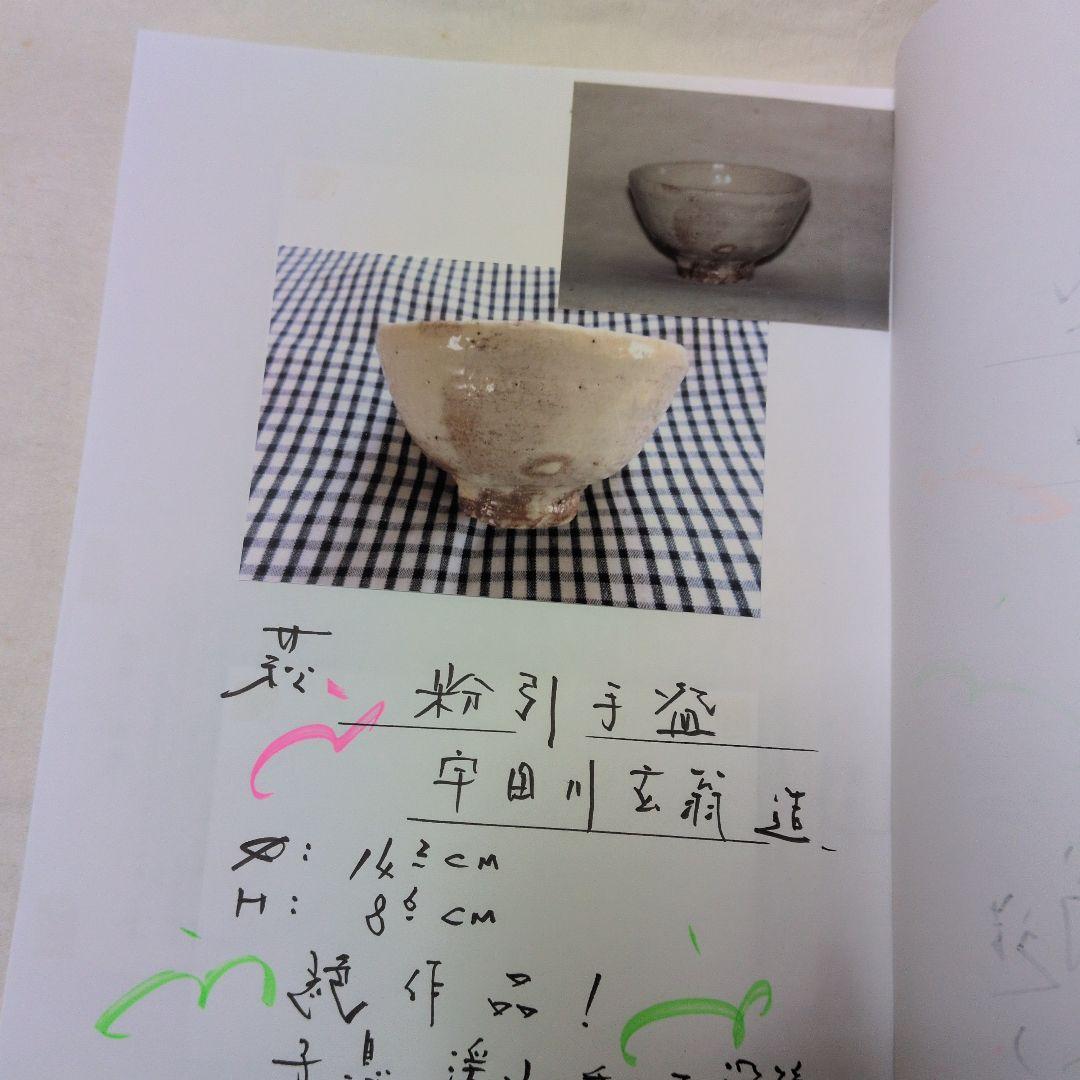 萩 粉引手盌
宇田川玄翁 造
Ø: 14² cm
H: 8⁶ cm
絶作品!